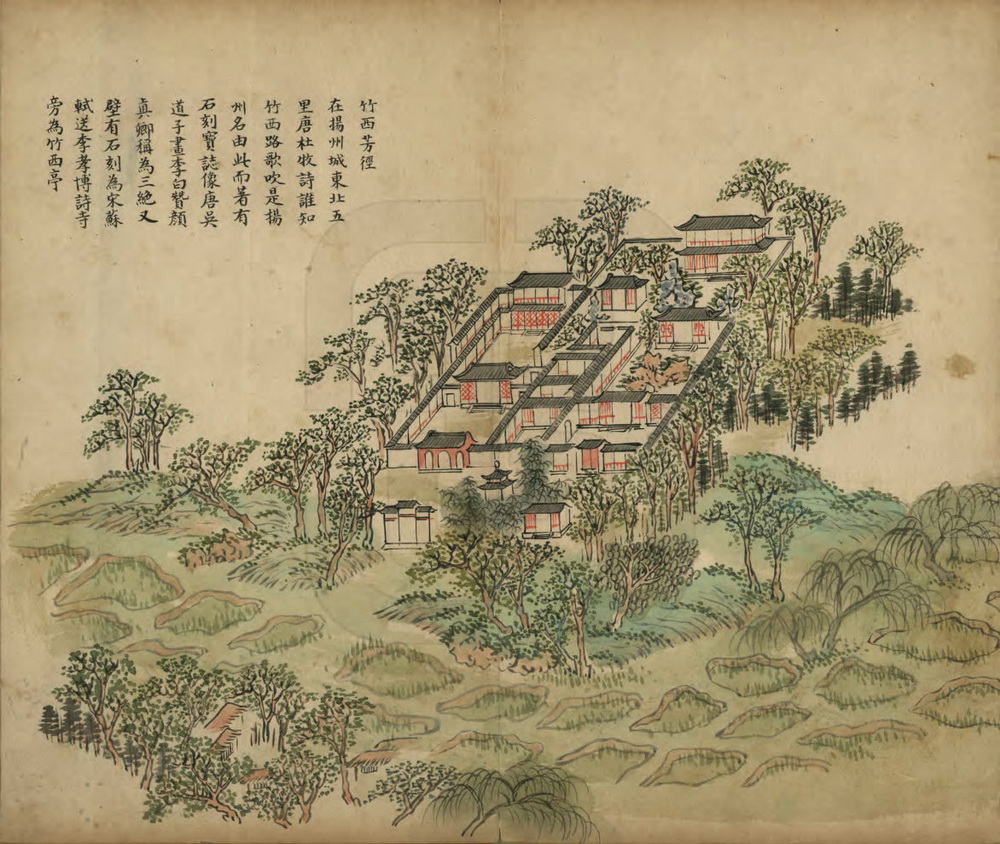 竹西芳徑
在揚州城東北五
里唐杜牧詩誰知
竹西路歌吹是揚
州名由此而著有
石刻寶誌像唐吳
道子畫李白贊顏
真卿稱為三絶又
壁有石刻為宋蘇
軾送李孝博詩寺
旁為竹西亭